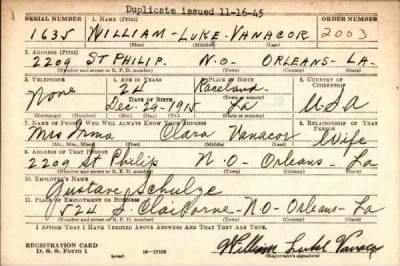 Duplicate issued 11-16-45
SERIAL NUMBER 1. NAME (Print) ORDER NUMBER
1635 WILLIAM-LUKE-VANACOR 2003
(First) (Middle) (Last)
2. ADDRESS (Print)
2209 ST PHILIP. N.O- ORLEANS-LA-
(Number and street or R. F. D. number) (Town) (County) (State)
3. TELEPHONE 4. AGE IN YEARS 5. PLACE OF BIRTH 6. COUNTRY OF CITIZENSHIP
None Raceland
(Town or county)
DATE OF BIRTH
Dec. 20-1915 La U.S.A
(Mo.) (Day) (Yr.) (State or country)
7. NAME OF PERSON WHO WILL ALWAYS KNOW YOUR ADDRESS 8. RELATIONSHIP OF THAT PERSON
Mrs Irma Clara Vanacor Wife
(Mr., Mrs., Miss) (First) (Middle) (Last)
9. ADDRESS OF THAT PERSON
2209 St Philip N-O-Orleans-La
(Number and street or R. F. D. number) (Town) (County) (State)
10. EMPLOYER'S NAME
Gustave Schulze
11. PLACE OF EMPLOYMENT OR BUSINESS
724 S. Claiborne-N-O-Orleans-La
(Number and street or R. F. D. number) (Town) (County) (State)
I AFFIRM THAT I HAVE VERIFIED ABOVE ANSWERS AND THAT THEY ARE TRUE.
REGISTRATION CARD
D. S. S. Form 1 (over) William Luke Vanacor
(Registrant's signature)